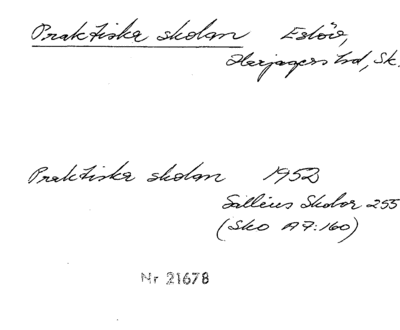 Praktiska skolan Eslöv,
Harjagers hd, Sk.
Praktiska skolan 1952
Salléns Skolor 255
(Sko A7:160)
Nr 21678